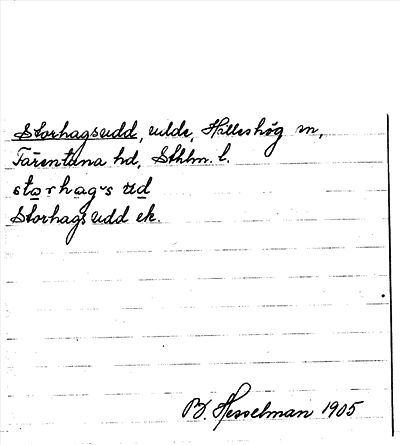 Storhagsudd, udde, Hilleshög sn,
Färentuna hd, Sthlm. l.
storhags ud
Storhagsudd ek.
B. Hesselman 1905